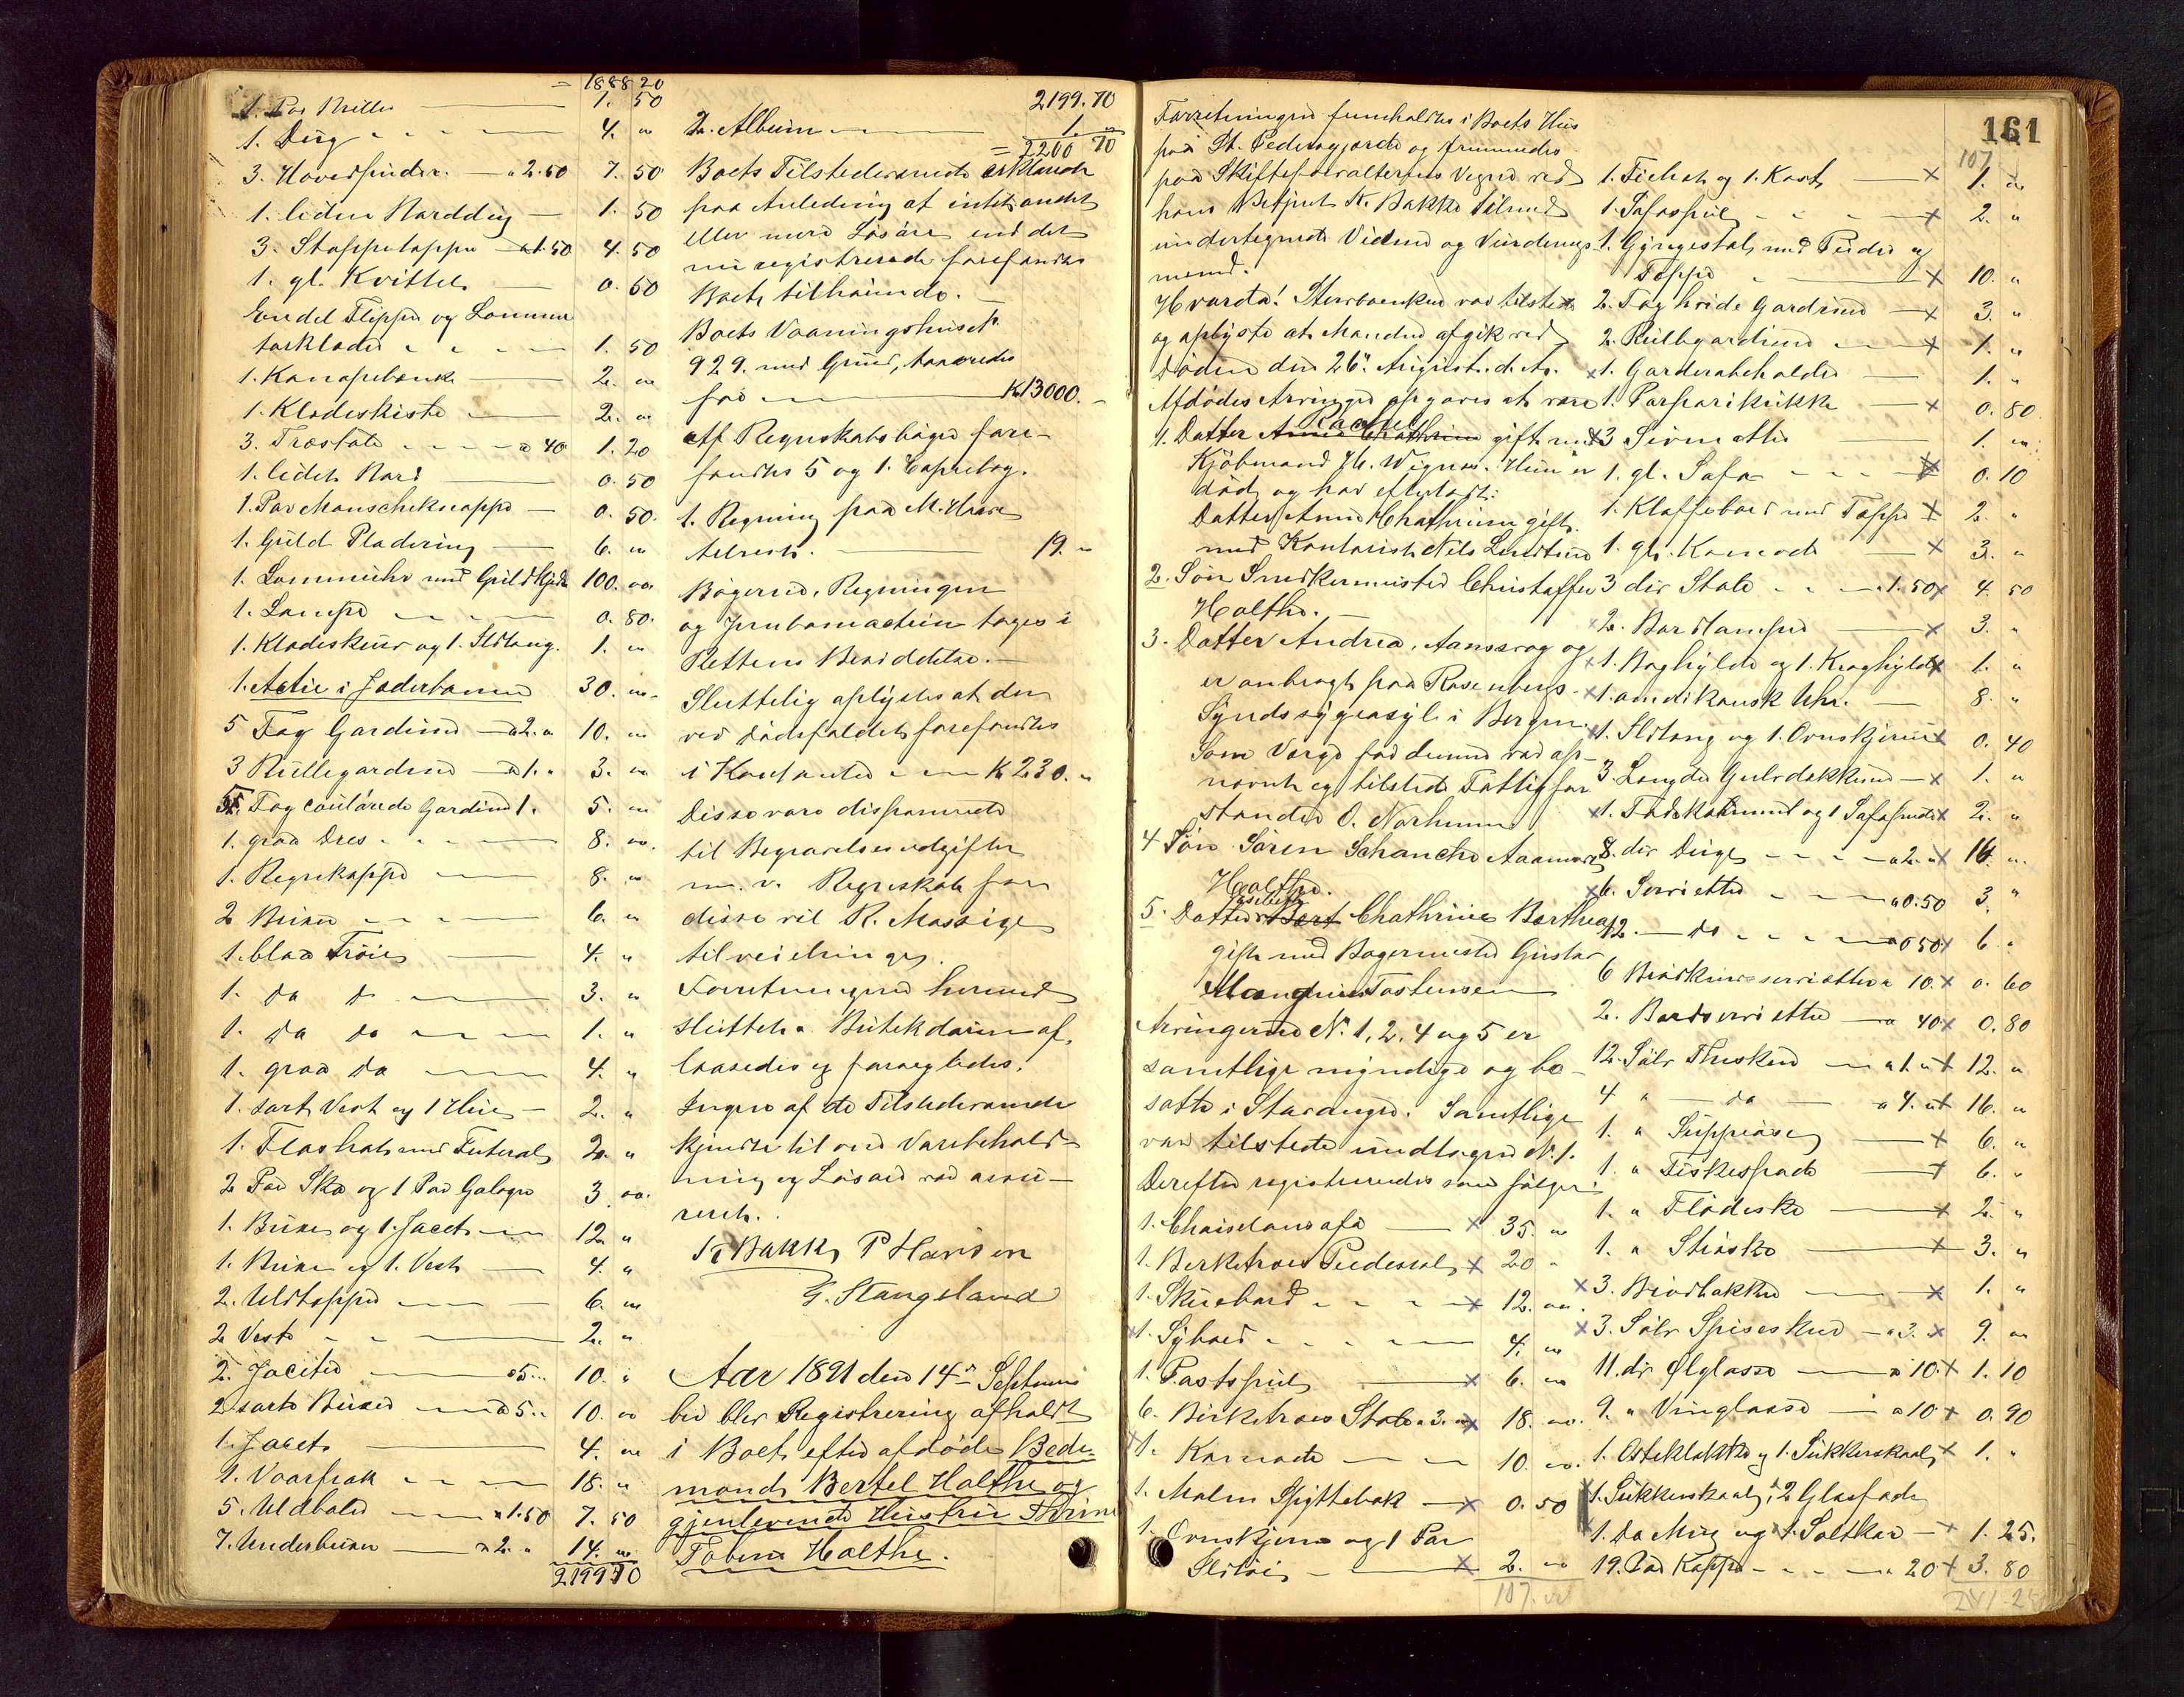 = 1888 20
1. Par Briller 1. 50
1. Dug 4. "
3. Hovedpuder a 2.50 7. 50
1. liden Norddug 1. 50
3. Stoppetæpper a 1.50 4. 50
1. gl. Kvittel 0. 50
Endel Flipper og Lomme
tørklæder 1. 50
1. Kanapebænk 2. "
1. Klædeskiste 2. "
3. Træstole a 40 1. 20
1. lidet Bord 0. 50
1. Par Manscheknapper 0. 50.
1. Guld Pladering 6. "
1. Lommeuhr med Guldkjede 100. "
1. Lampe 0. 80.
1. Klædeskuur og 1. Ildtang. 1. "
1. Actie i Jæderbanen 30. "
5 Fag Gardiner a 2. " 10. "
3 Rullegardiner a 1. " 3. "
5. Fag coulørede Gardiner 1. 5. "
1. graa Dres 8. "
1. Regnkappe 8. "
2 Buxer 6. "
1. blaa Trøie 4. "
1. do do 3. "
1. do do 1. "
1. graa do 4. "
1. sort Vest og 1 Hue 2. "
1. Floshat med Futeral 2. "
2 Par Sko og 1 Par Galoger 3. "
1. Buxe og 1. Jacet 12. "
1. Buxe og 1. Vest 4. "
2. Uldtæpper 6. "
2 Veste 2. "
2. Jaceter a 5. " 10. "
2 sorte Buxer a 5. " 10. "
1. Jacet 4. "
1. Vaarfrak 18. "
5. Uldboler a 1.50 7. 50
7. Underbuxer a 2. " 14. "
2199 70
2199. 70
2. Album 1. "
= 2200 70
Boets Tilstedeværende erklærede
paa Anledning at intet andet
eller mere Løsøre end det
nu registrerede forefandtes
Boet tilhørende.
Boets Vaaningshus
929. med Grund, taxeredes
for Kr 13000. -
Af Regnskabsbøger fore-
fandtes 5 og 1. Copiebog.
1. Regning paa M. Haare
tilrest. 19. "
Bøgerne, Regningen
og Jernbaneactien toges i
Rettens Besiddelse. -
Sluttelig oplystes at der
ved Dødsfaldet forefandtes
i Kontanter Kr 230. "
Disse vare disponerede
til Begravelsesudgifter
m. v. Regnskab for
disse vil R. Massige
tilveiebringe.
Forretningen hermed
sluttet. Butikdøren af-
laasedes og forsegledes.
Ingen af de Tilstedeværende
kjendte til om Varebehold-
ning og Løsøre var assu-
reret.
K Bakke P Hansen
G. Stangeland
Aar 1891 den 14de Septem
ber blev Registrering afholdt
i Boet efter afdøde Bede-
mand Bertel Holthe og
gjenlevende Hustru Thrine
Tobine Holthe.
161
Forretningen fremholdtes i Boets Hus
paa St. Pedersgjerde og fremmedes
paa Skifteforvalterens Vegne ved
hans Betjent K. Bakke tilmed
undertegnede Vidner og Vurderings
mænd.
Hvorda! Sterboenken var tilstede
og oplyste at Manden afgik ved
Døden den 26de August d. A.
Afdødes Arvinger opgaves at være
Rachel
1. Datter Anne Chathrine gift med
Kjøbmand H. Wignes. Hun er
død og har efterladt:
Datter Anne Chathrine gift
med Kontorist Nils Lindtner
2. Søn Snedkermester Christoffer
Holthe.
3. Datter Andrea, Aanssvag og
er anbragt paa Rosenbergs
Syndssygeasyl i Bergen.
Som Værge for denne var op-
nævnt og tilstede Fattigfor
stander O. Norheim
4 Søn Søren Schanche Aamoes
Holthe.
5. Datter Bert Chathrine Berthea
gift med Bagermester Gustav
Magnus Tostensen
Arvingerne No. 1, 2, 4 og 5 er
samtlige myndige og bo-
satte i Stavanger. Samtlige
var tilstede undtagen No. 1.
Derefter registreredes som følger:
1. Chaiselonsofa x 35. "
1. Berketræes Piedestal x 20 "
1. Skuebord x 12. "
x1. Sybord 4. "
1. Pastspeil x 6. "
6. Birketræes Stole a 3. " x 18. "
x1. Komode 10. "
1. Malm Spyttebak x 0. 50
1. Ovnskjerm og 1 Par
Ildtøi x 2. "
107. "
107
1. Tiebat og 1. Kost x 1. "
1. Sofaspeil x 2. "
1. Gyngestol med Pude og
Tæppe x 10. "
2. Fag hvide Gardiner x 3. "
2. Rullegardiner x 1. "
x1. Garderobeholder 1. "
1. Porparikrukke x 0. 80
x3 Sivmatter 1. "
1. gl. Sofa x 0. 10
1. Klaffebord med Tæppe x 2. "
1. gl. Komode x 3. "
3 dir Stole a 1.50 x 4. 50
x2. Bordlamper x 3. "
x1. Boghylde og 1. Kroghylde x 1. "
x1. amerikansk Uhr. 8. "
x1. Ildtang og 1. Ovnskjerm x 0. 40
3. Længder Gulvdækken x 1. "
x1. og 1 Sofapude x 2. "
8. dir Duge a 2. " x 16. "
x6. Servietter a 0.50 3. "
12. do a 0 50 x 6. "
6 Brødkurvservietter a 10. x 0. 60
2. Bordservietter a 40 x 0. 80
12. Sølv Theskeer a 1. " x 12. "
4 " do a 4. " x 16. "
1. " Suppeøse x 6. "
1. " Fiskespade x 6. "
1. " Flødeske x 2. "
1. " Strøske x 3. "
x 3. Brødbakker x 1. "
x 3. Sølv Spiseskeer a 3. x 9. "
11. dir Ølglasse a 10. x 1. 10
9. " Vinglasse a 10 x 0. 90
1. Osteklokke og 1. Sukkerskaal x 1. "
x1. Sukkerskaal, 2 Glasfade
x1. Do Mug og 1. Saltkar x 1. 25.
19. Par Kopper a 20 x 3. 80
241. 25